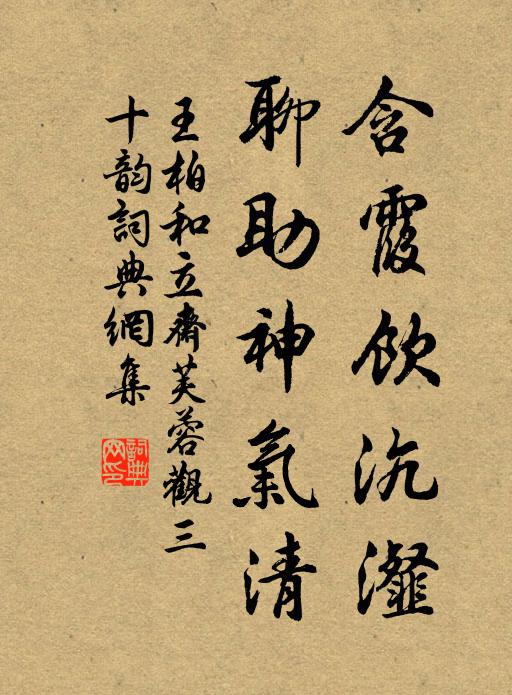 含霞飲沆瀣
聊助神氣清
王柏和立齋芙蓉觀三
十韵詞典網集
詞典網印